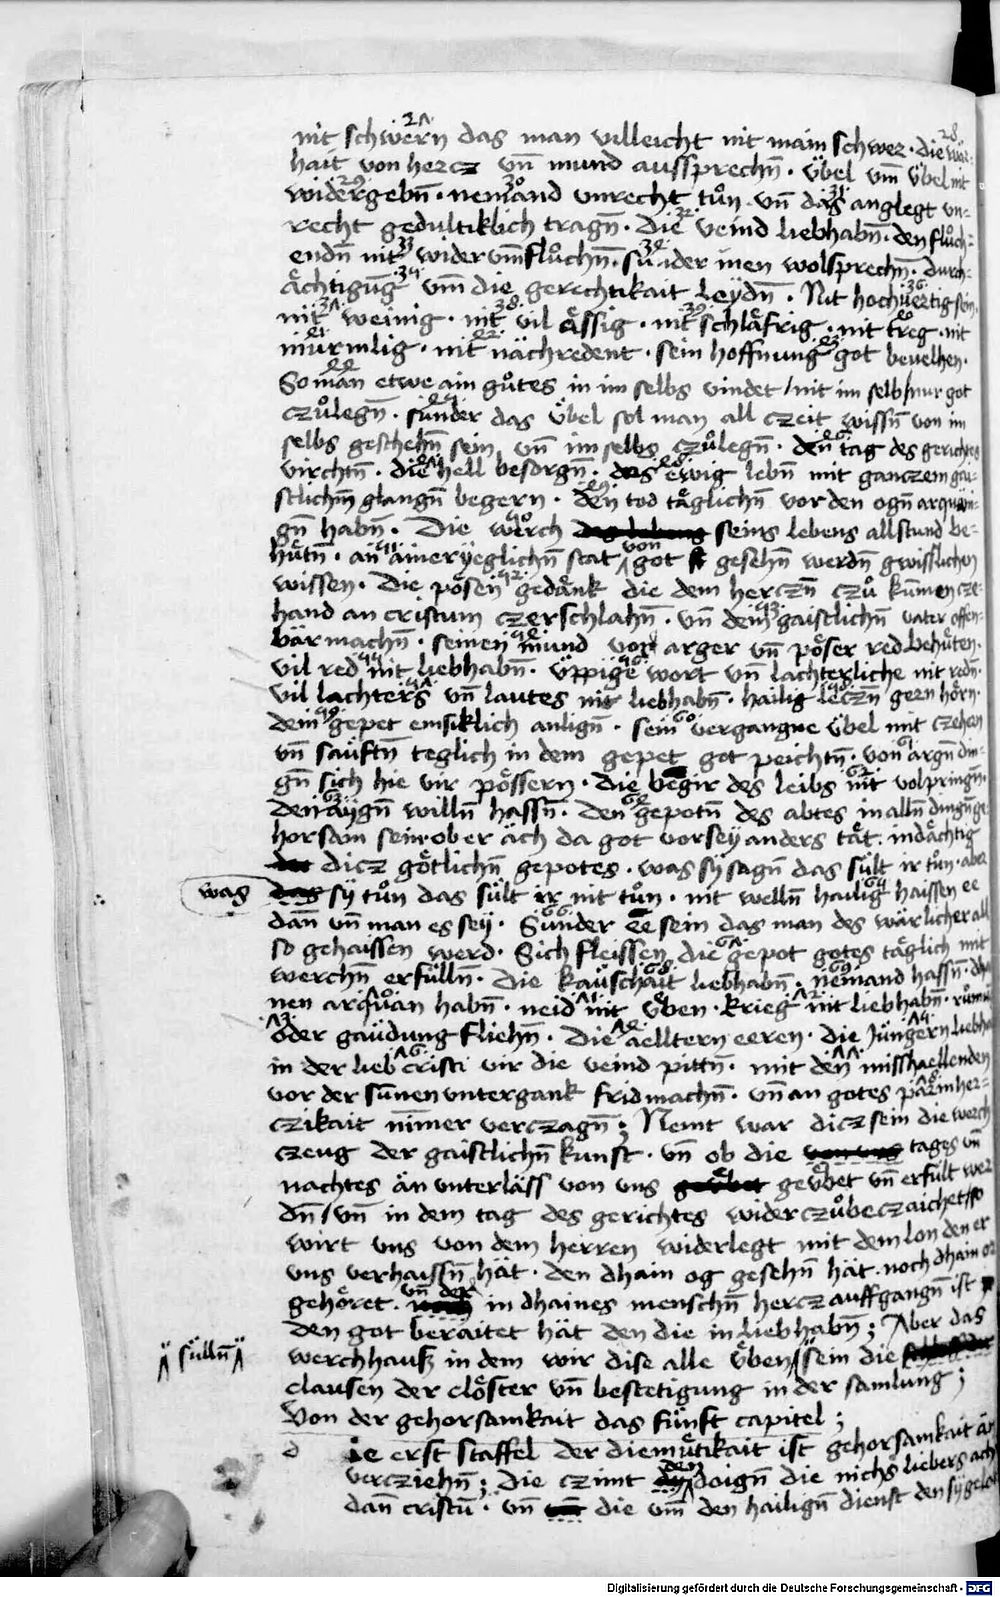 nit schwern das man villeicht nit main schwer · die war-
hait von hercz vn̄ mund aussprechn̄ · v̈bel vm̄ v̈bel nit
widergebn̄ · nemand vnrecht tůn · vn̄ das anglegt vn-
recht gedultiklich tragn̄ · Die veind liebhabn̄ · den flůch-
endn̄ nit widervm̄flůchn̄ · sunder inen wolsprechn̄ · durch-
ächtigūg vm̄ die gerechtikait leydn̄ · Nit hochuertig sein
nit weinig · nit vil ässig · nit schläfrig · nit treg · nit
murmlig · nit nächredent · sein hoffnung got beuelhen ·
So man etwe ain gůtes in im selbs vindet / nit im selb / nur got
czůlegn̄ · sunder das v̈bel sol man all czeit wissn̄ von im
selbs geschehn̄ sein vn̄ im selbs czůlegn̄ · den tag des gerichtes
virchtn̄ · die hell besorgn̄ · das ewig lebn̄ mit ganczem gai-
stlichm̄ glangn̄ begern · den tod täglichn̄ vor den ogn̄
gn̄ habn̄ · Die werch seins lebens allstund be-
hůtn̄ · an ainer yeglichn̄ stat von got gesehn̄ werdn̄ gwisslichen
wissen · Die pösen gedänk die dem herczn̄ czů kum̄en cze-
hand an cristum czerschlahn̄ · vn̄ dem gaistlichn̄ vater offen-
bär machn̄ · seinen mund vor arger vn̄ pöser red behüten ·
vil red nit liebhabn̄ · v̈ppige wort vn̄ lachterliche nit redn̄ ·
vil lachters vn̄ lautes nit liebhabn̄ · hailig leczn̄ gern hörn ·
dem gepet emsiklich anlign̄ · sein vergangne v̈bel mit czehern
vn̄ sauftn̄ teglich in dem gepet got peichtn̄ · von argn̄ din-
gn̄ sich hie vir pössern · die begir des leibs nit volpringn̄ ·
den aygn̄ willn̄ hassn̄ · den gepotn̄ des abtes in alln̄ dingn̄ ge-
horsam sein · ob er äch da got vor sey anders tät · indächtig
dicz götlichn̄ gepotes · was sy sagn̄ das sült ir tun · aber
was sy tůn das sült ir nit tůn · nit welln̄ hailig haissen ee
dan̄ vn̄ man es sey · Sunder ee sein das man des wärlicher all
so gehaissen werd · Sich fleissen die gepot gotes täglich mit
werchn̄ erfülln̄ · die käuschait liebhabn̄ · niemand hassn̄ ·
nen arquan habn̄ · neid nit v̈ben · krieg nit liebhabn̄ ·
oder gaüdung fliehn̄ · Die aelltern eeren · die jüngern
in der lieb cristi vir die veind pittn̄ · mit den misshaellenden
vor der sun̄en vntergank frid machn̄ · vn̄ an gotes parmher-
czikait nim̄er verczagn̄ ; Nemt war dicz sein die werch
czeug der gaistlichn̄ kunst · vn̄ ob die tages vn̄
nachtes än vnterläss von vns geübet vn̄ erfült wer
dn̄ / vn̄ in dem tag des gerichtes widerczůbeczaichet / so
wirt vns von dem herren widerlegt mit dem lon den er
vns verhaissn̄ hät · den dhain og gesehn̄ hät · noch dhain or
gehöret · vn̄ der in dhaines menschn̄ hercz auffgangn̄ ist
den got beraitet hät den die in liebhabn̄ ; Aber das
werchhauss in dem wir dise alle v̈ben sülln̄ / sein die
clausen der clöster vn̄ bestetigung in der samlung ;
Von der gehorsamkait das fünft capitel ;
d ie erst staffel der diemütikait ist gehorsamkait än
vercziehn̄ ; Die czimt den daign̄ die nichs liebers
dan̄ cristū · vn̄ die vm̄ den hailign̄ dienst den sy
Digitalisierung gefördert durch die Deutsche Forschungsgemeinschaft - DFG